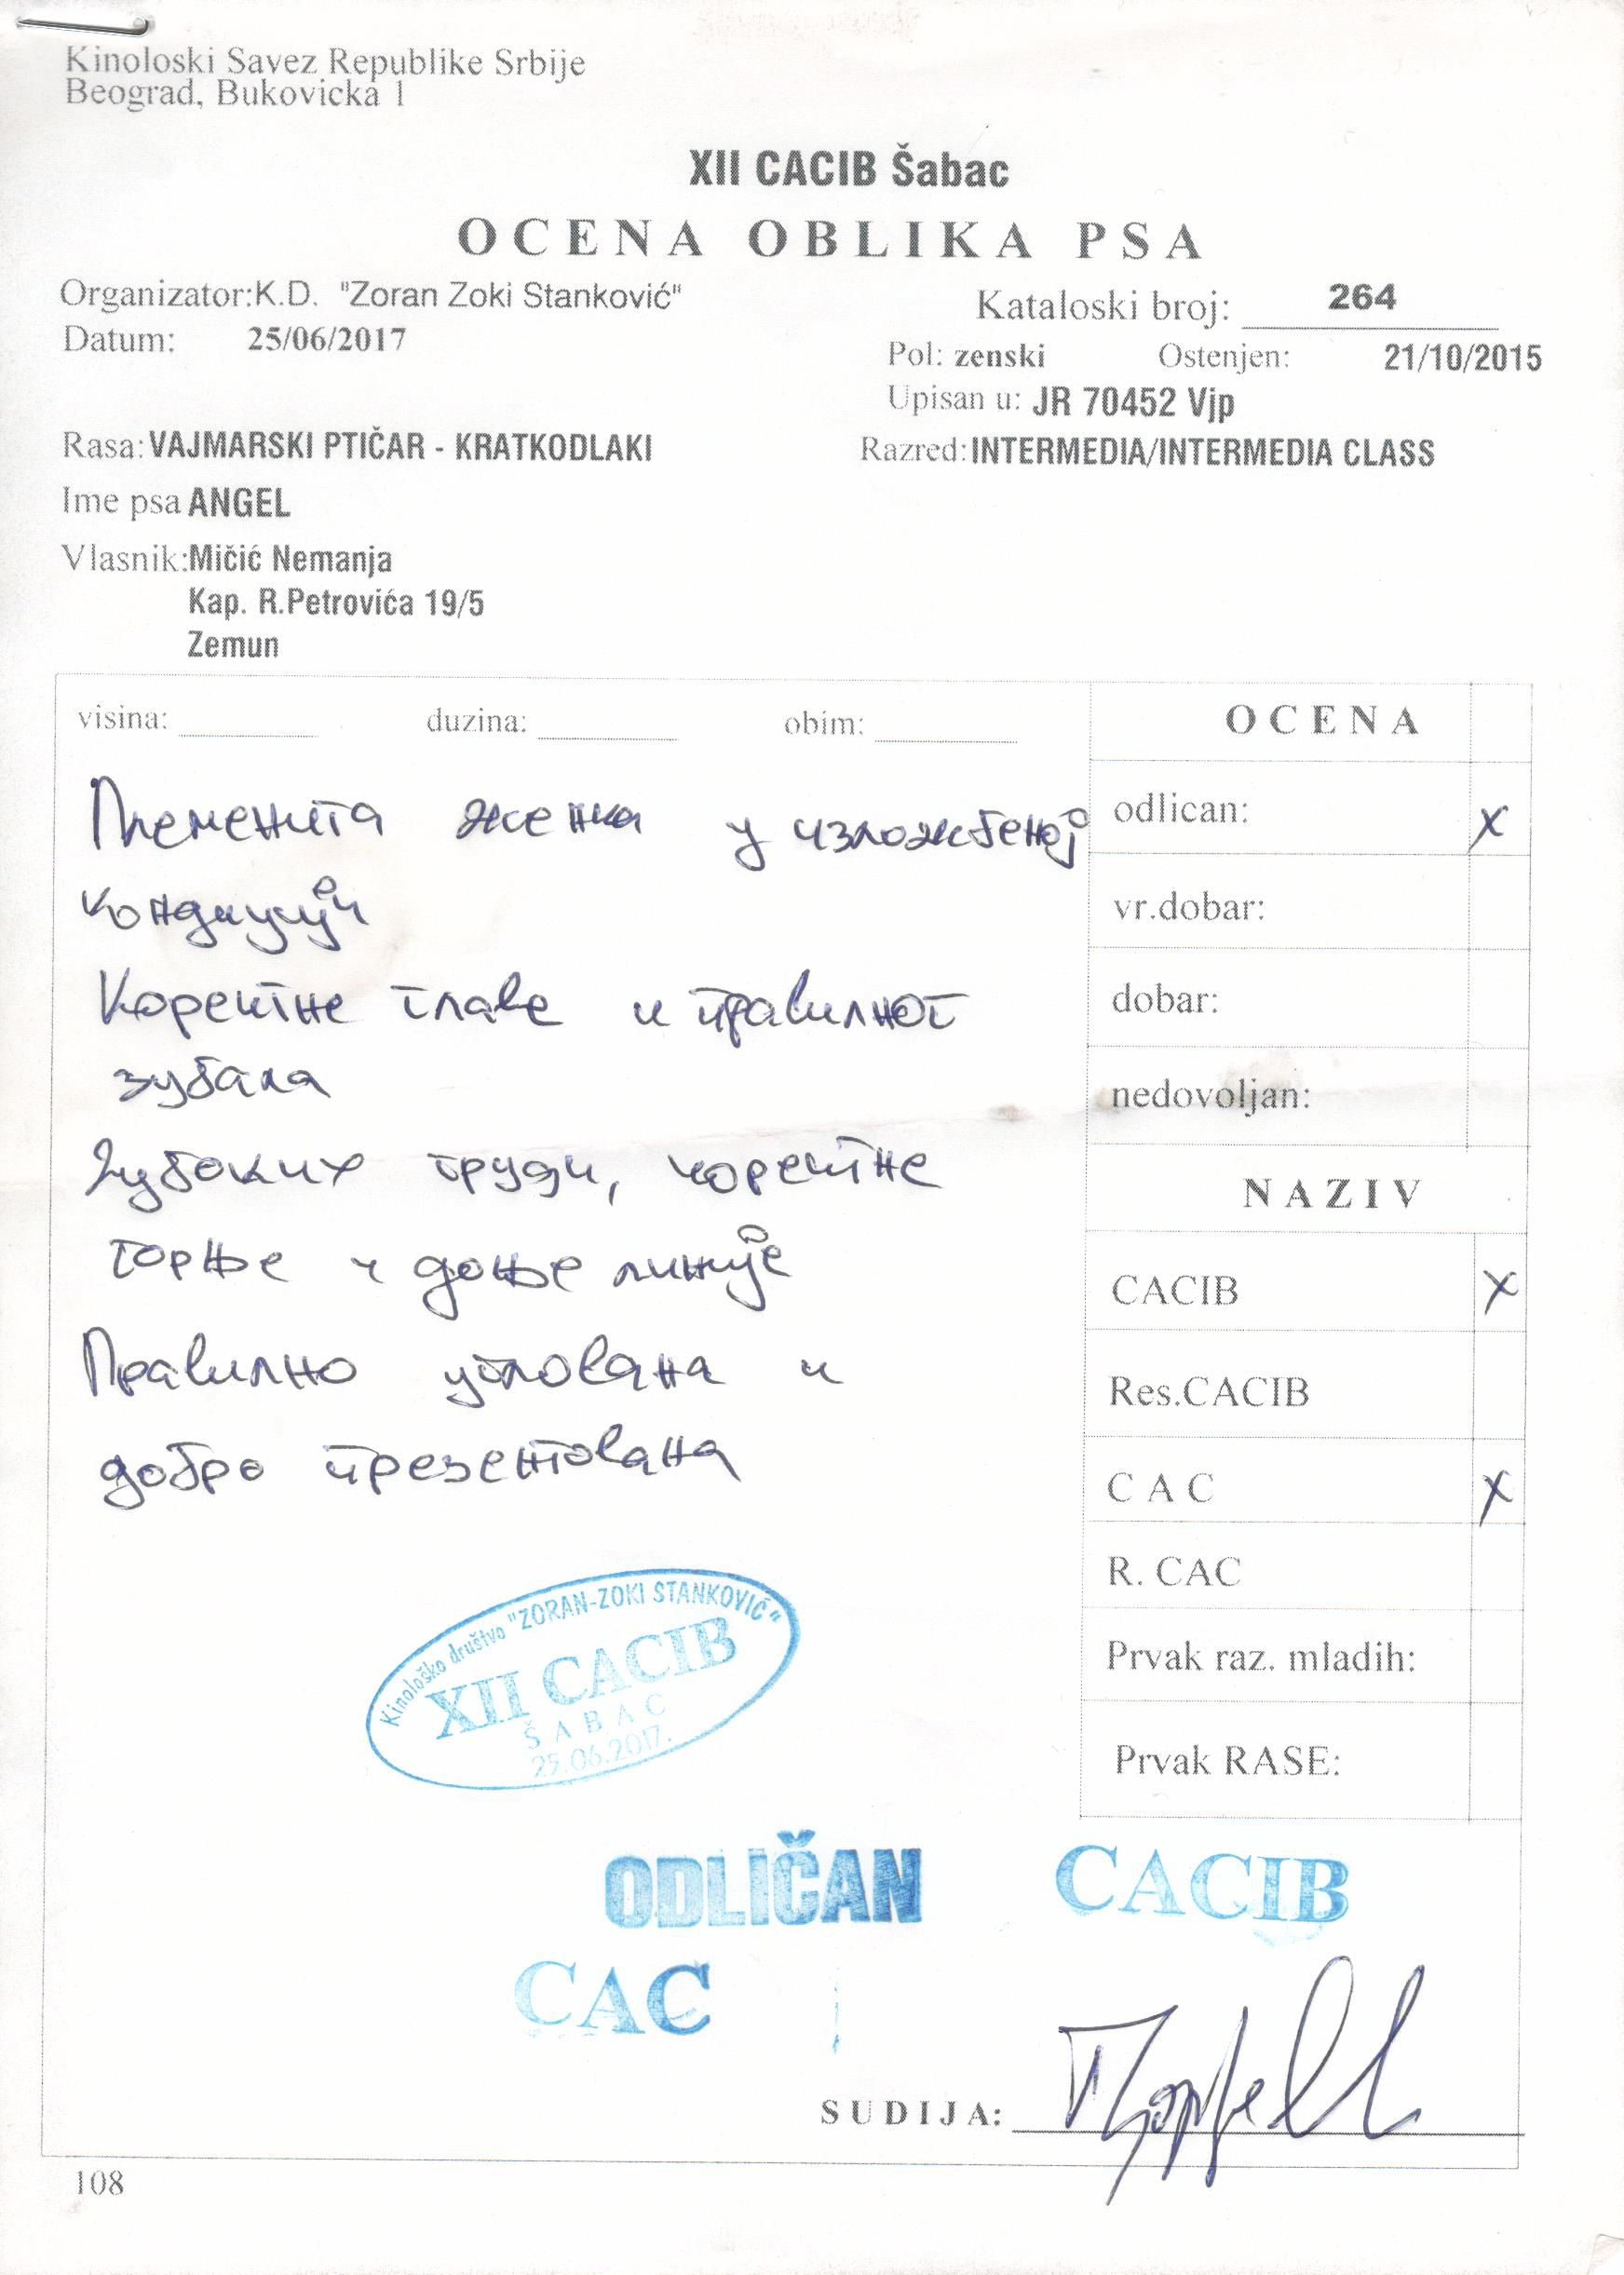 Kinoloski Savez Republike Srbije
Beograd, Bukovicka 1
XII CACIB Šabac
OCENA OBLIKA PSA
Organizator: K.D. "Zoran Zoki Stanković"
Kataloski broj: 264
Datum: 25/06/2017
Pol: zenski Ostenjen: 21/10/2015
Upisan u: JR 70452 Vjp
Rasa: VAJMARSKI PTIČAR - KRATKODLAKI
Razred: INTERMEDIA/INTERMEDIA CLASS
Ime psa ANGEL
Vlasnik: Mičić Nemanja
Kap. R.Petrovića 19/5
Zemun
visina: duzina: obim:
Племенита женка у изложбеној
кондицији
Коректне главе и правилног
зубала
Дубоких груди, коректне
горње и доње линије
Правилно углована и
добро презентована
OCENA
odlican: x
vr.dobar:
dobar:
nedovoljan:
NAZIV
CACIB x
Res.CACIB
C A C x
R. CAC
Prvak raz. mladih:
Prvak RASE:
Kinološko društvo "ZORAN-ZOKI STANKOVIĆ"
XII CACIB
ŠABAC
25.06.2017.
ODLIČAN CACIB
CAC
SUDIJA:
108